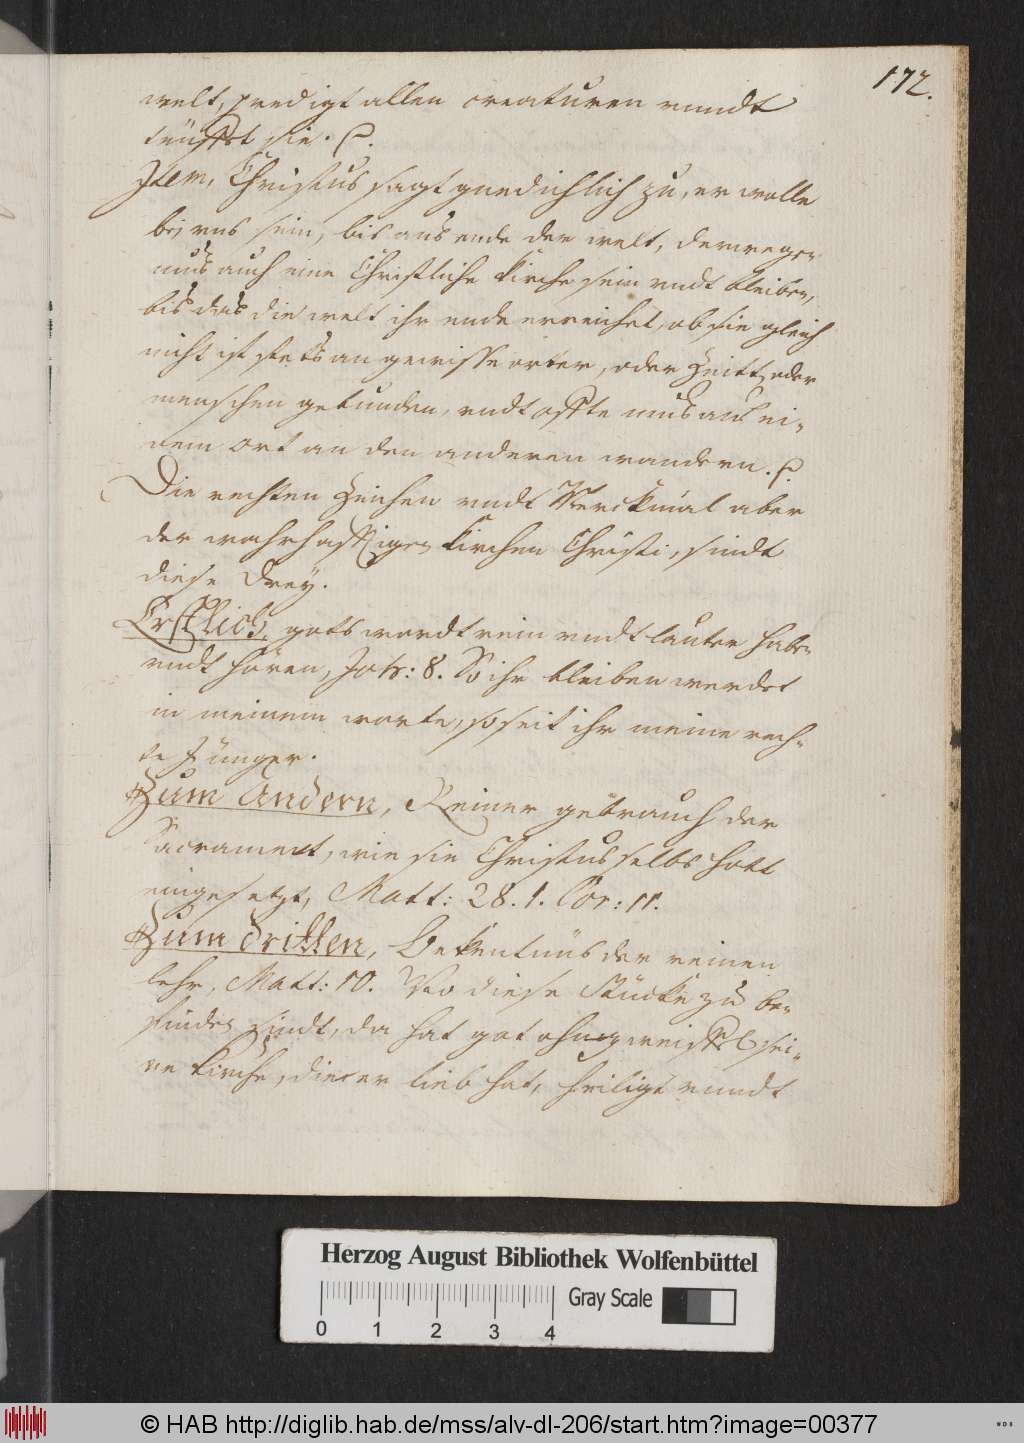 172.
welt, predigt allen creaturen vnndt
teüffet sie. ꝛc.
Item, Christus sagt gnedichlich zu, er wolle
bej vns sein, bis ans ende der welt, derwegen
mus auch eine Christliche Kirche sein vndt bleiben,
bis das die welt ihr ende erreichet, ob sie gleich
nicht ist stets an gewisse örter, oder Zeitt, oder
menschen gebunden, vndt offte mus aus ei-
nem ort an den anderen wandern. ꝛc.
Die rechten Zeichen vndt Merckmal aber
der wahrhafftigen Kirchen Christi, sindt
diese Drey.
Erstlich, gots wordt rein vndt lauter haben
vndt hören, Joh: 8. So ihr bleiben werdet
in meinem worte, so seit ihr meine rech-
te Jünger.
Zum Andern, Reiner gebrauch der
Sacrament, wie sie Christus selbs hatt
eingesetzt, Matt: 28. 1. Cor: 11.
Zum dritten, Bekentnüs der reinen
lehr, Matt: 10. Wo diese Stücke zu be-
finden sindt, da hat got ohn zweiffel sei-
ne Kirche, die er lieb hat, heiligt vnndt
Herzog August Bibliothek Wolfenbüttel
Gray Scale
0 1 2 3 4
© HAB http://diglib.hab.de/mss/alv-dl-206/start.htm?image=00377